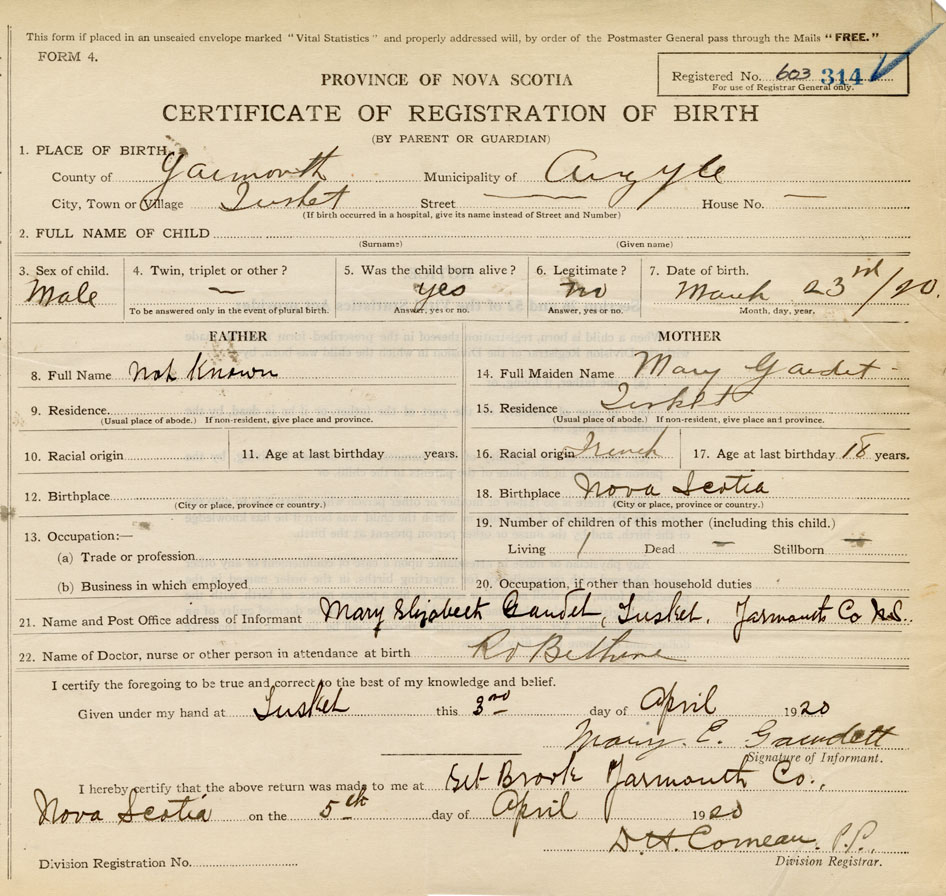 This form if placed in an unsealed envelope marked "Vital Statistics" and properly addressed will, by order of the Postmaster General pass through the Mails "FREE."
FORM 4.
Registered No. 603 314
For use of Registrar General only.
PROVINCE OF NOVA SCOTIA
CERTIFICATE OF REGISTRATION OF BIRTH
(BY PARENT OR GUARDIAN)
1. PLACE OF BIRTH,
County of Yarmouth Municipality of Argyle
City, Town or Village Tusket Street — House No. —
(If birth occurred in a hospital, give its name instead of Street and Number)
2. FULL NAME OF CHILD
(Surname) (Given name)
3. Sex of child. 4. Twin, triplet or other? 5. Was the child born alive? 6. Legitimate? 7. Date of birth.
Male — yes no March 23rd/20.
To be answered only in the event of plural birth. Answer, yes or no. Answer, yes or no. Month, day, year.
FATHER MOTHER
8. Full Name Not Known 14. Full Maiden Name Mary Gaudet -
9. Residence. 15. Residence Tusket
(Usual place of abode.) If non-resident, give place and province. (Usual place of abode.) If non-resident, give place and province.
10. Racial origin 11. Age at last birthday years. 16. Racial origin French 17. Age at last birthday 18 years.
12. Birthplace 18. Birthplace Nova Scotia
(City or place, province or country.) (City or place, province or country.)
13. Occupation:— 19. Number of children of this mother (including this child.)
(a) Trade or profession Living 1 Dead — Stillborn —
(b) Business in which employed 20. Occupation, if other than household duties
21. Name and Post Office address of Informant Mary Elizabeth Gaudet, Tusket, Yarmouth Co N.S.
22. Name of Doctor, nurse or other person in attendance at birth Bethune
I certify the foregoing to be true and correct to the best of my knowledge and belief.
Given under my hand at Tusket this 3rd day of April 1920
Mary. E. Gaudett
Signature of Informant.
I hereby certify that the above return was made to me at Eel Brook Yarmouth Co.,
Nova Scotia on the 5th day of April 1920
D.H. Comeau, P.P.,
Division Registrar.
Division Registration No.